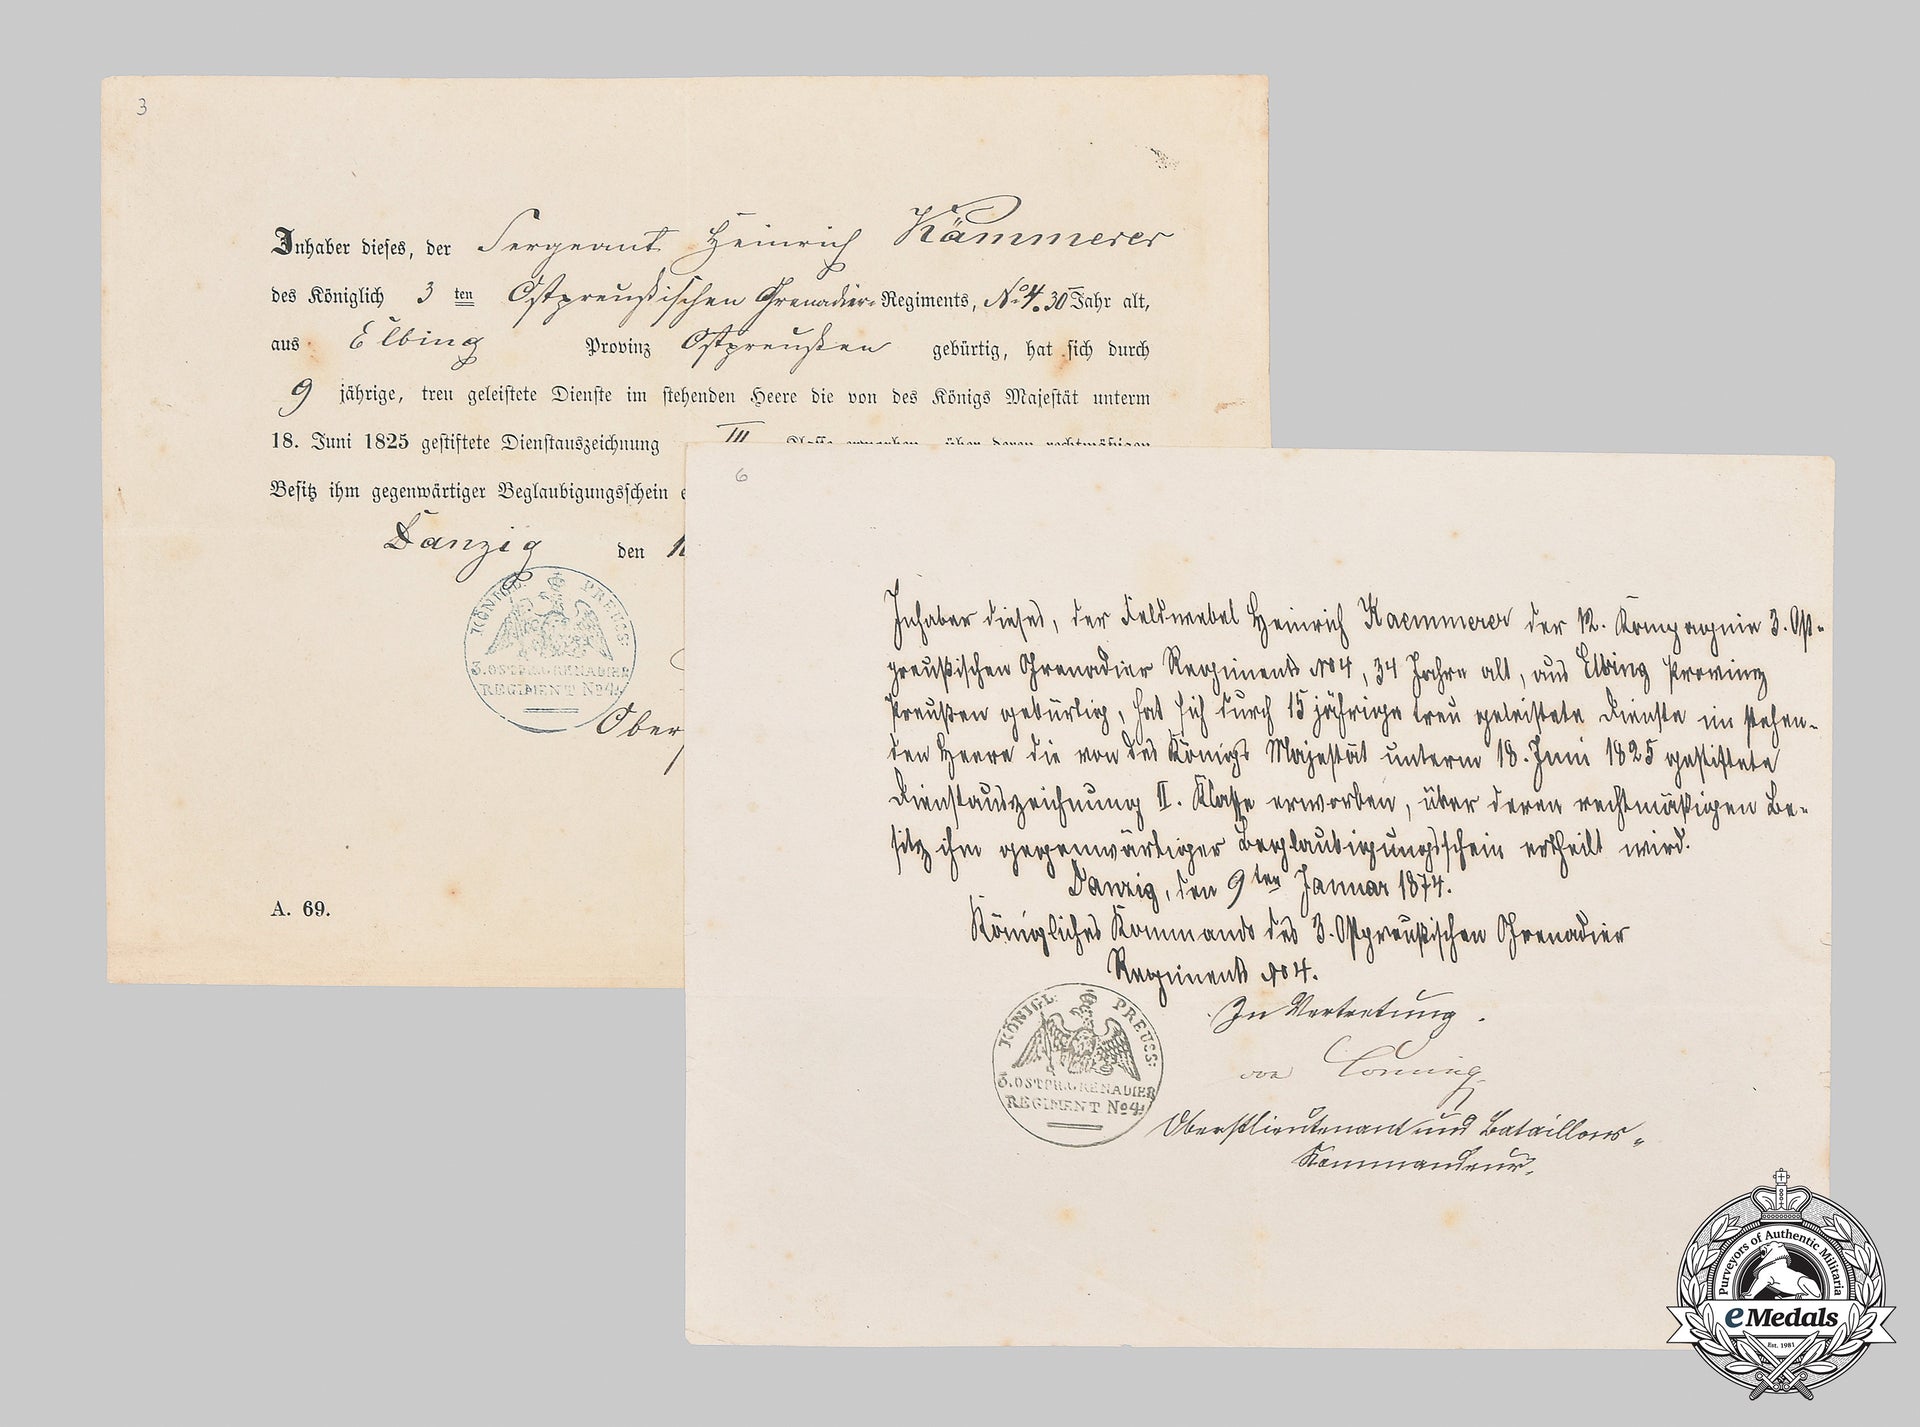 3
Inhaber dieses, der Sergeant Heinrich Kämmerer
des Königlich 3 ten Ostpreußischen Grenadier-Regiments, No 4. 30 Jahr alt,
aus Elbing Provinz Ostpreußen gebürtig, hat sich durch
9 jährige, treu geleistete Dienste im stehenden Heere die von des Königs Majestät unterm
18. Juni 1825 gestiftete Dienstauszeichnung III Classe erworben, über deren rechtmäßigen
Besitz ihm gegenwärtiger Beglaubigungsschein e
Danzig den
KÖNIGL. PREUSS:
3. OSTPR. GRENADIER
REGIMENT No 4.
Ober
A. 69.
6
Inhaber dieses, der Feldwebel Heinrich Kaemmerer der 12. Kompagnie 3. Ost-
preußischen Grenadier Regiments No 4, 34 Jahre alt, aus Elbing Provinz
Preußen gebürtig, hat sich durch 15 jährige treu geleistete Dienste im stehen-
den Heere die von des Königs Majestät unterm 18. Juni 1825 gestiftete
Dienstauszeichnung II. Klasse erworben, über deren rechtmäßigen Be-
sitz ihm gegenwärtiger Beglaubigungsschein ertheilt wird.
Danzig, den 9ten Januar 1874.
Königliches Kommando des 3. Ostpreußischen Grenadier
Regiments No 4.
KÖNIGL. PREUSS:
3. OSTPR. GRENADIER
REGIMENT No 4.
In Vertretung.
von
Oberstlieutenant und Bataillons-
Kommandeur.
Purveyors of Authentic Militaria
eMedals
Est. 1981